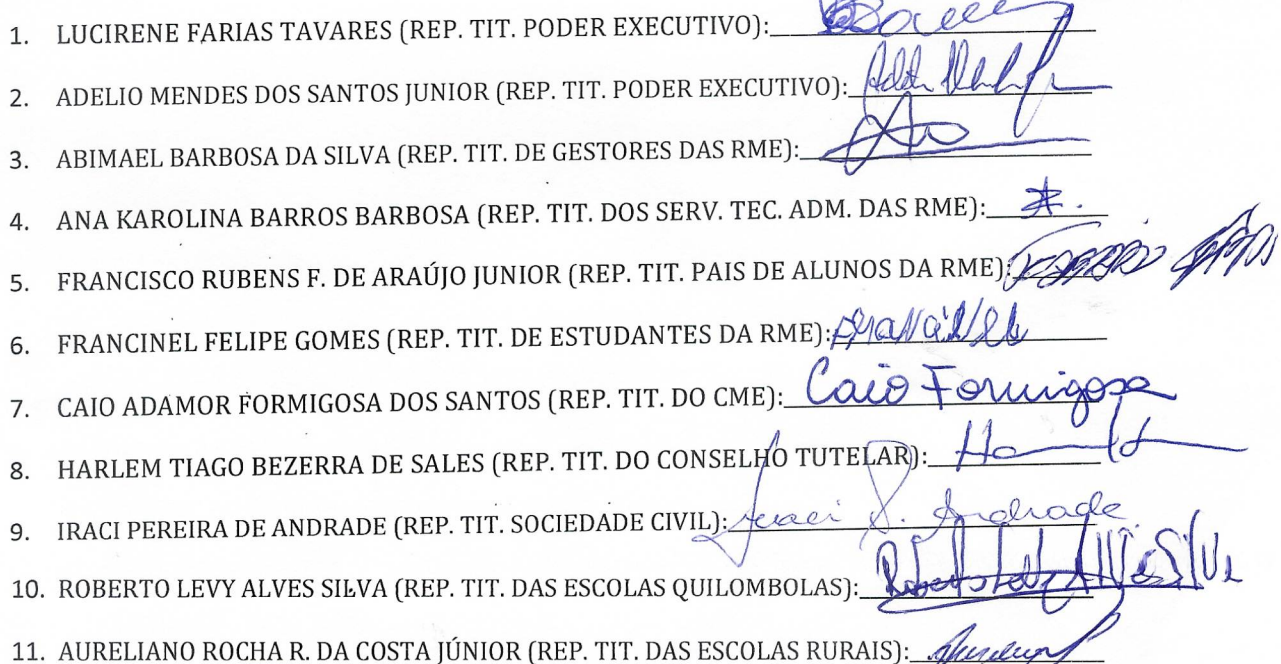 1. LUCIRENE FARIAS TAVARES (REP. TIT. PODER EXECUTIVO):
2. ADELIO MENDES DOS SANTOS JUNIOR (REP. TIT. PODER EXECUTIVO):
3. ABIMAEL BARBOSA DA SILVA (REP. TIT. DE GESTORES DAS RME):
4. ANA KAROLINA BARROS BARBOSA (REP. TIT. DOS SERV. TEC. ADM. DAS RME):
5. FRANCISCO RUBENS F. DE ARAÚJO JUNIOR (REP. TIT. PAIS DE ALUNOS DA RME):
6. FRANCINEL FELIPE GOMES (REP. TIT. DE ESTUDANTES DA RME):
7. CAIO ADAMOR FORMIGOSA DOS SANTOS (REP. TIT. DO CME): Caio Formigosa
8. HARLEM TIAGO BEZERRA DE SALES (REP. TIT. DO CONSELHO TUTELAR):
9. IRACI PEREIRA DE ANDRADE (REP. TIT. SOCIEDADE CIVIL): Iraci P. Andrade
10. ROBERTO LEVY ALVES SILVA (REP. TIT. DAS ESCOLAS QUILOMBOLAS): Roberto Levy Alves Silva
11. AURELIANO ROCHA R. DA COSTA JÚNIOR (REP. TIT. DAS ESCOLAS RURAIS):